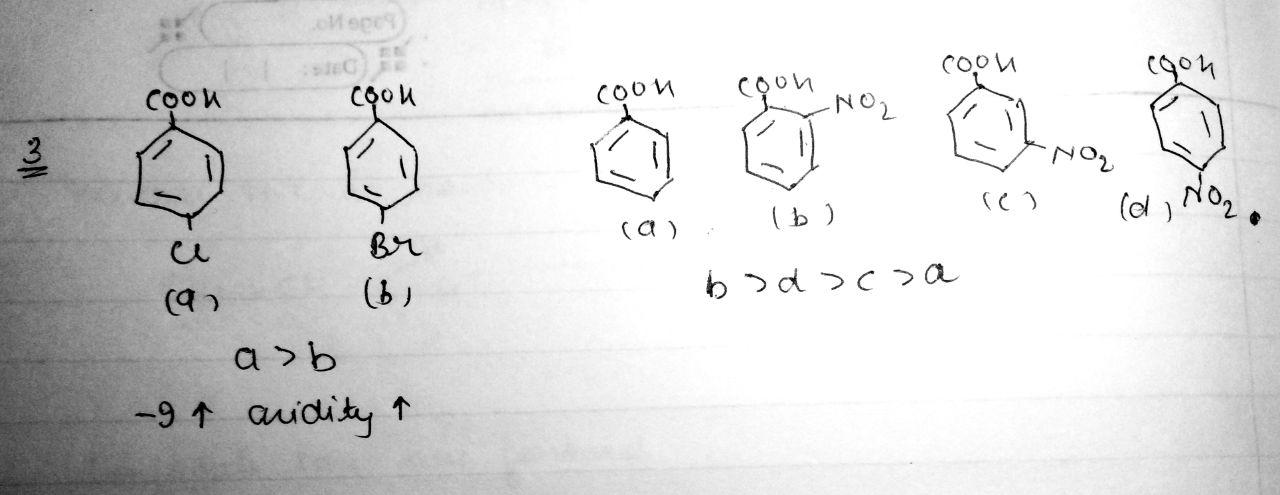 Page No.
Date:
3
COOH
Cl
(a)
COOH
Br
(b)
a > b
-g ↑ acidity ↑
COOH
(a)
COOH
NO2
(b)
COOH
NO2
(c)
COOH
NO2
(d)
b > d > c > a